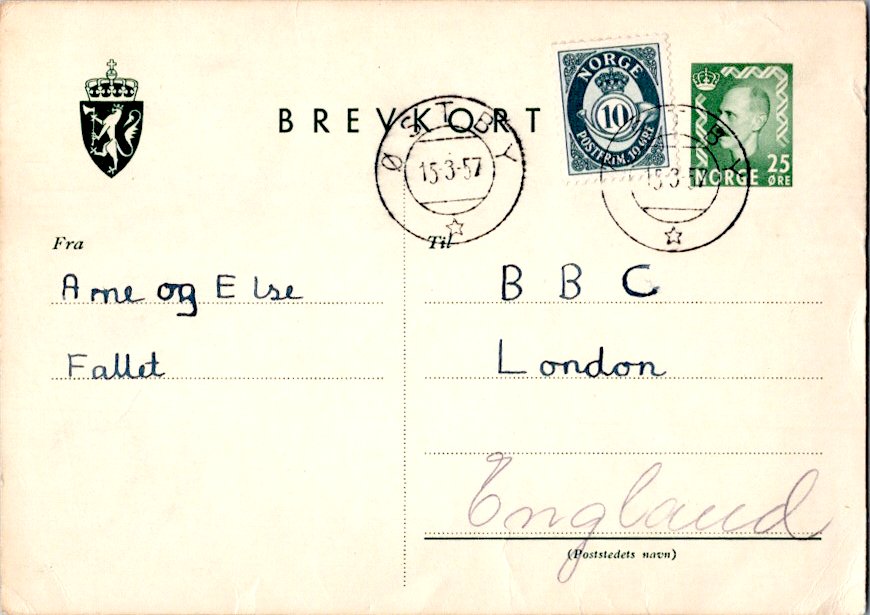 BREVKORT
NORGE
10
POSTFRIM. 10 ØRE
NORGE 25 ØRE
ØSTBY
15-3-57
ØSTBY
15-3-57
Fra
Arne og Else
Fallet
Til
BBC
London
England
(Poststedets navn)